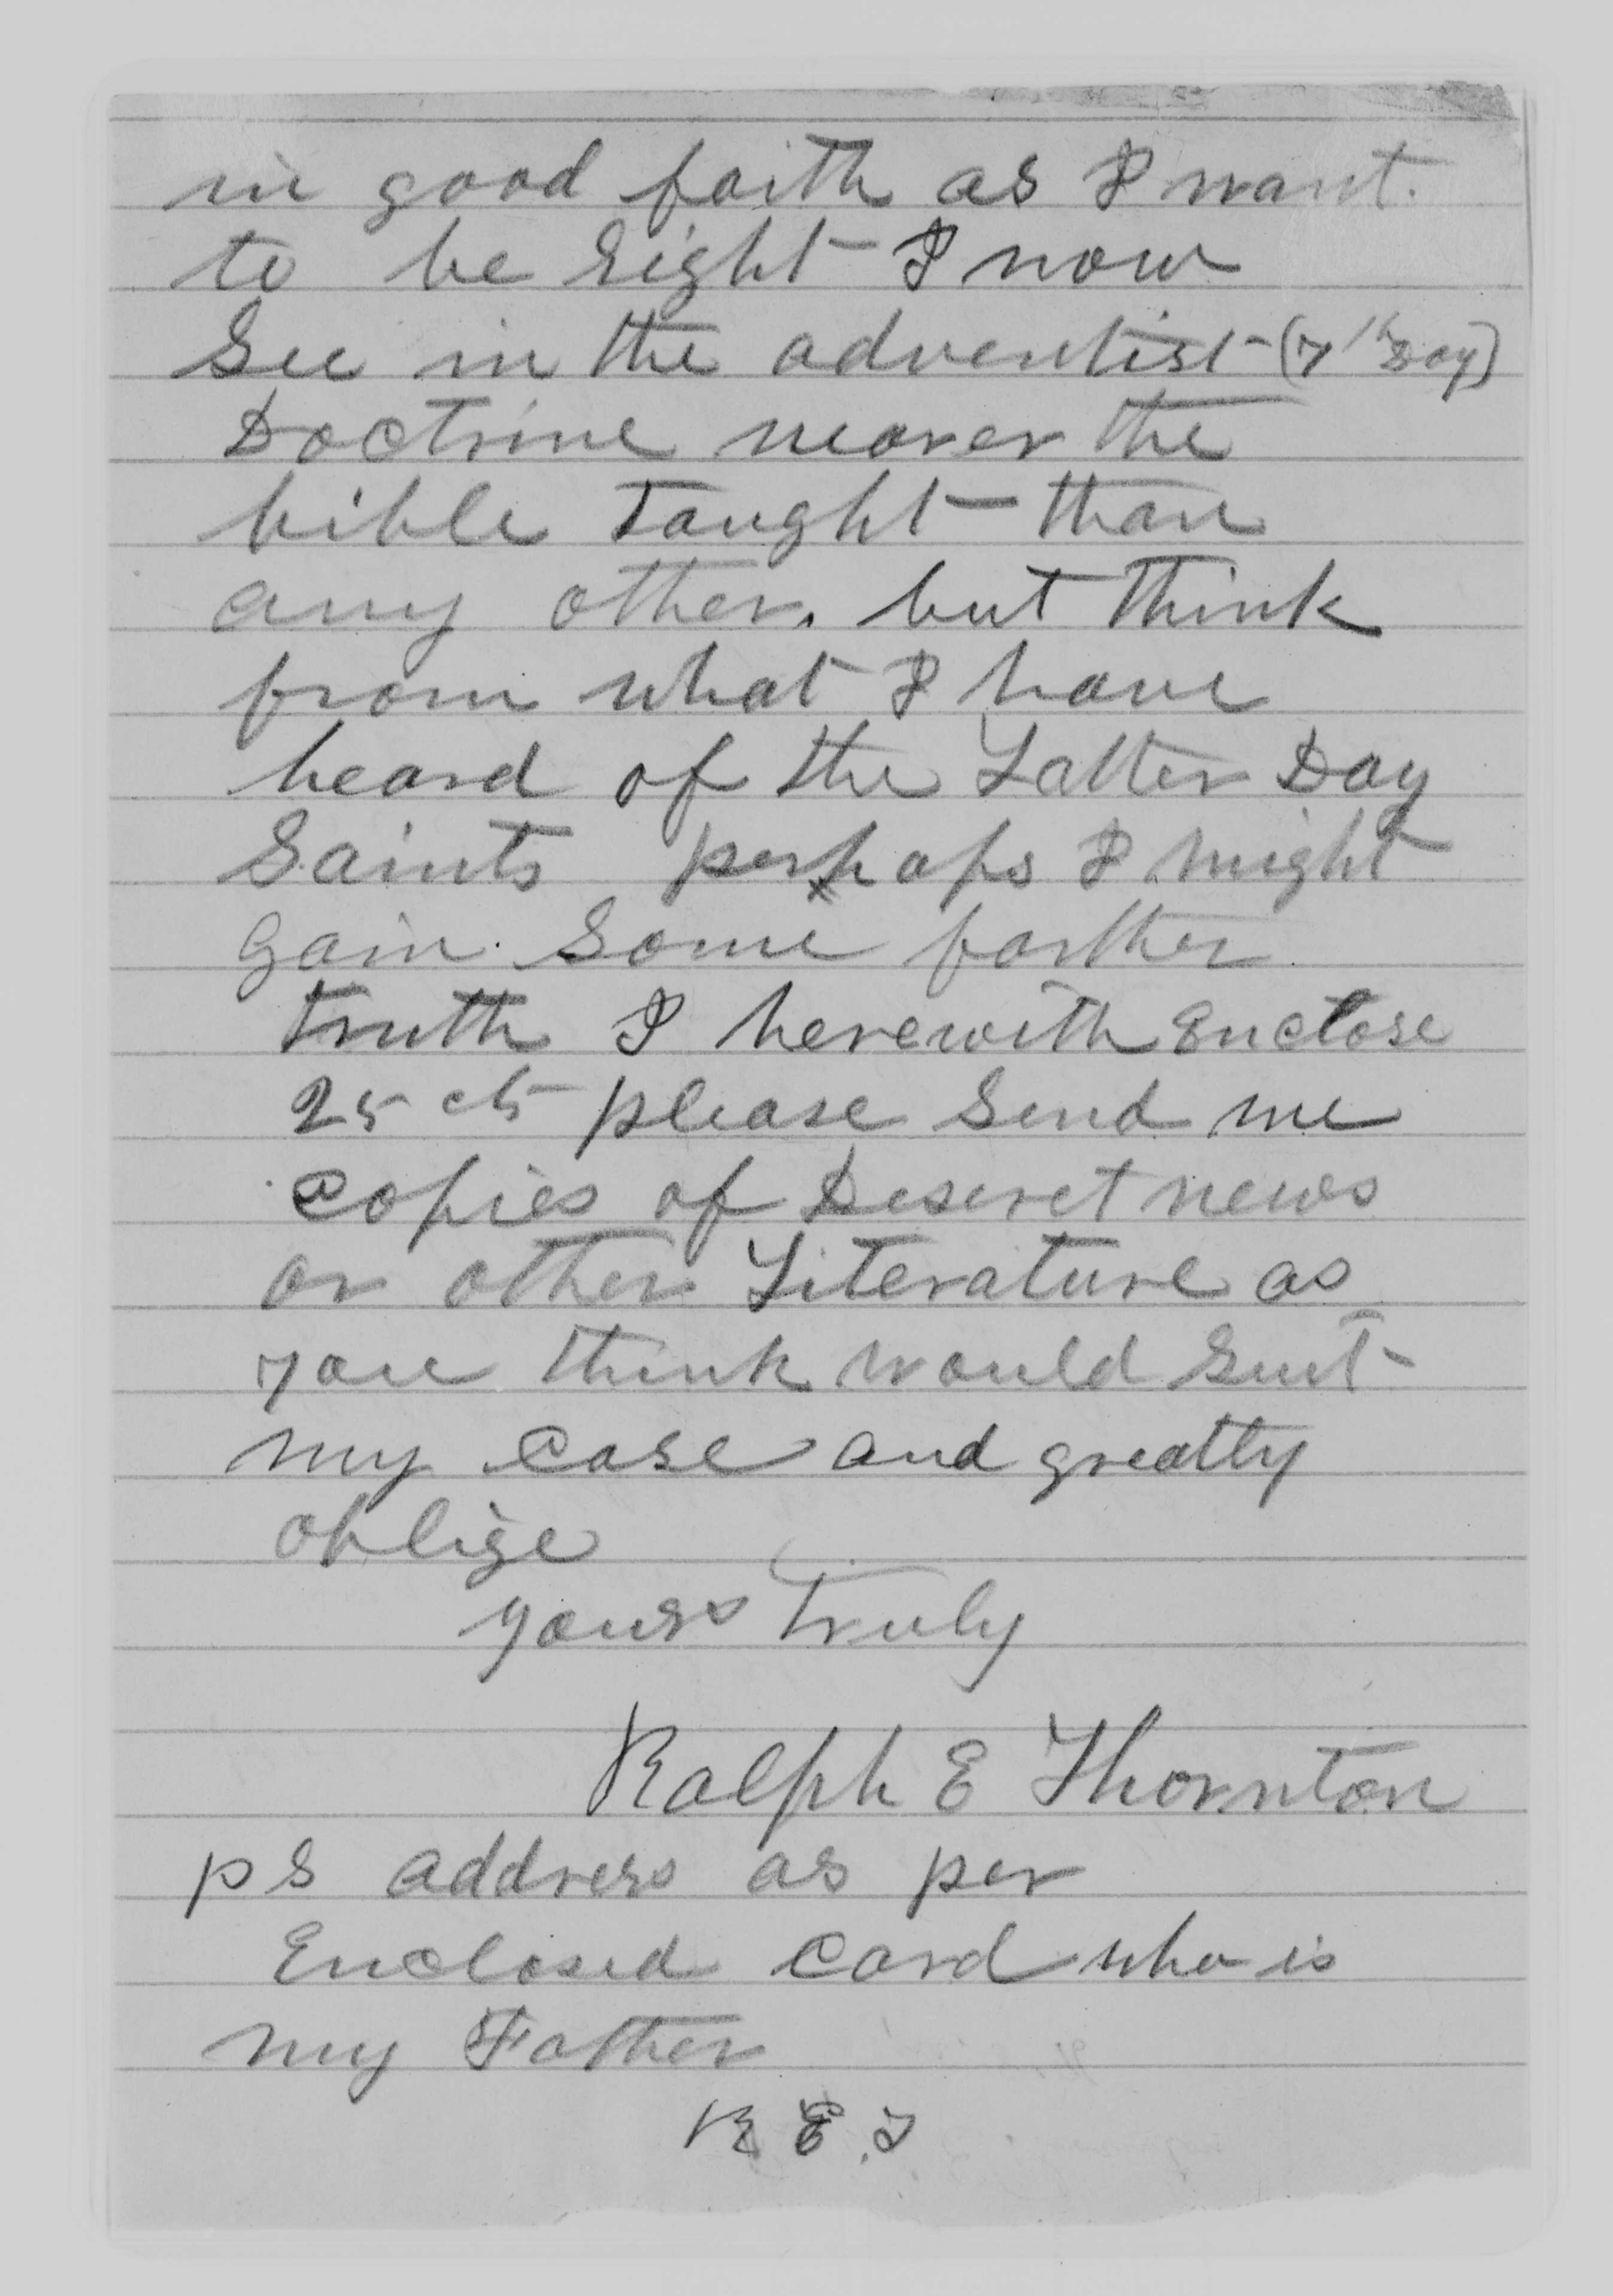 in good faith as I want
to be Right I now
See in the adventist (7th Day)
Doctrine nearer the
bible Taught than
any other. but Think
from what I have
heard of the Latter Day
Saints perhaps I might
gain Some farther
truth I herewith Enclose
25 cts please Send me
Copies of Deseret news
or other Literature as
you think would Suit
my Case and greatly
oblige
yours Truly
Ralph E Thornton
p s address as per
Enclosed Card who is
my Father
R E T